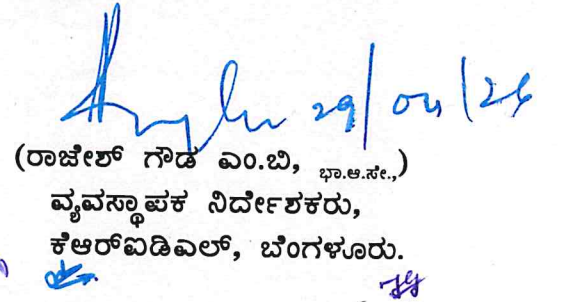 29/04/26
(ರಾಜೇಶ್ ಗೌಡ ಎಂ.ಬಿ, ಭಾ.ಆ.ಸೇ.,)
ವ್ಯವಸ್ಥಾಪಕ ನಿರ್ದೇಶಕರು,
ಕೆಆರ್‌ಐಡಿಎಲ್, ಬೆಂಗಳೂರು.